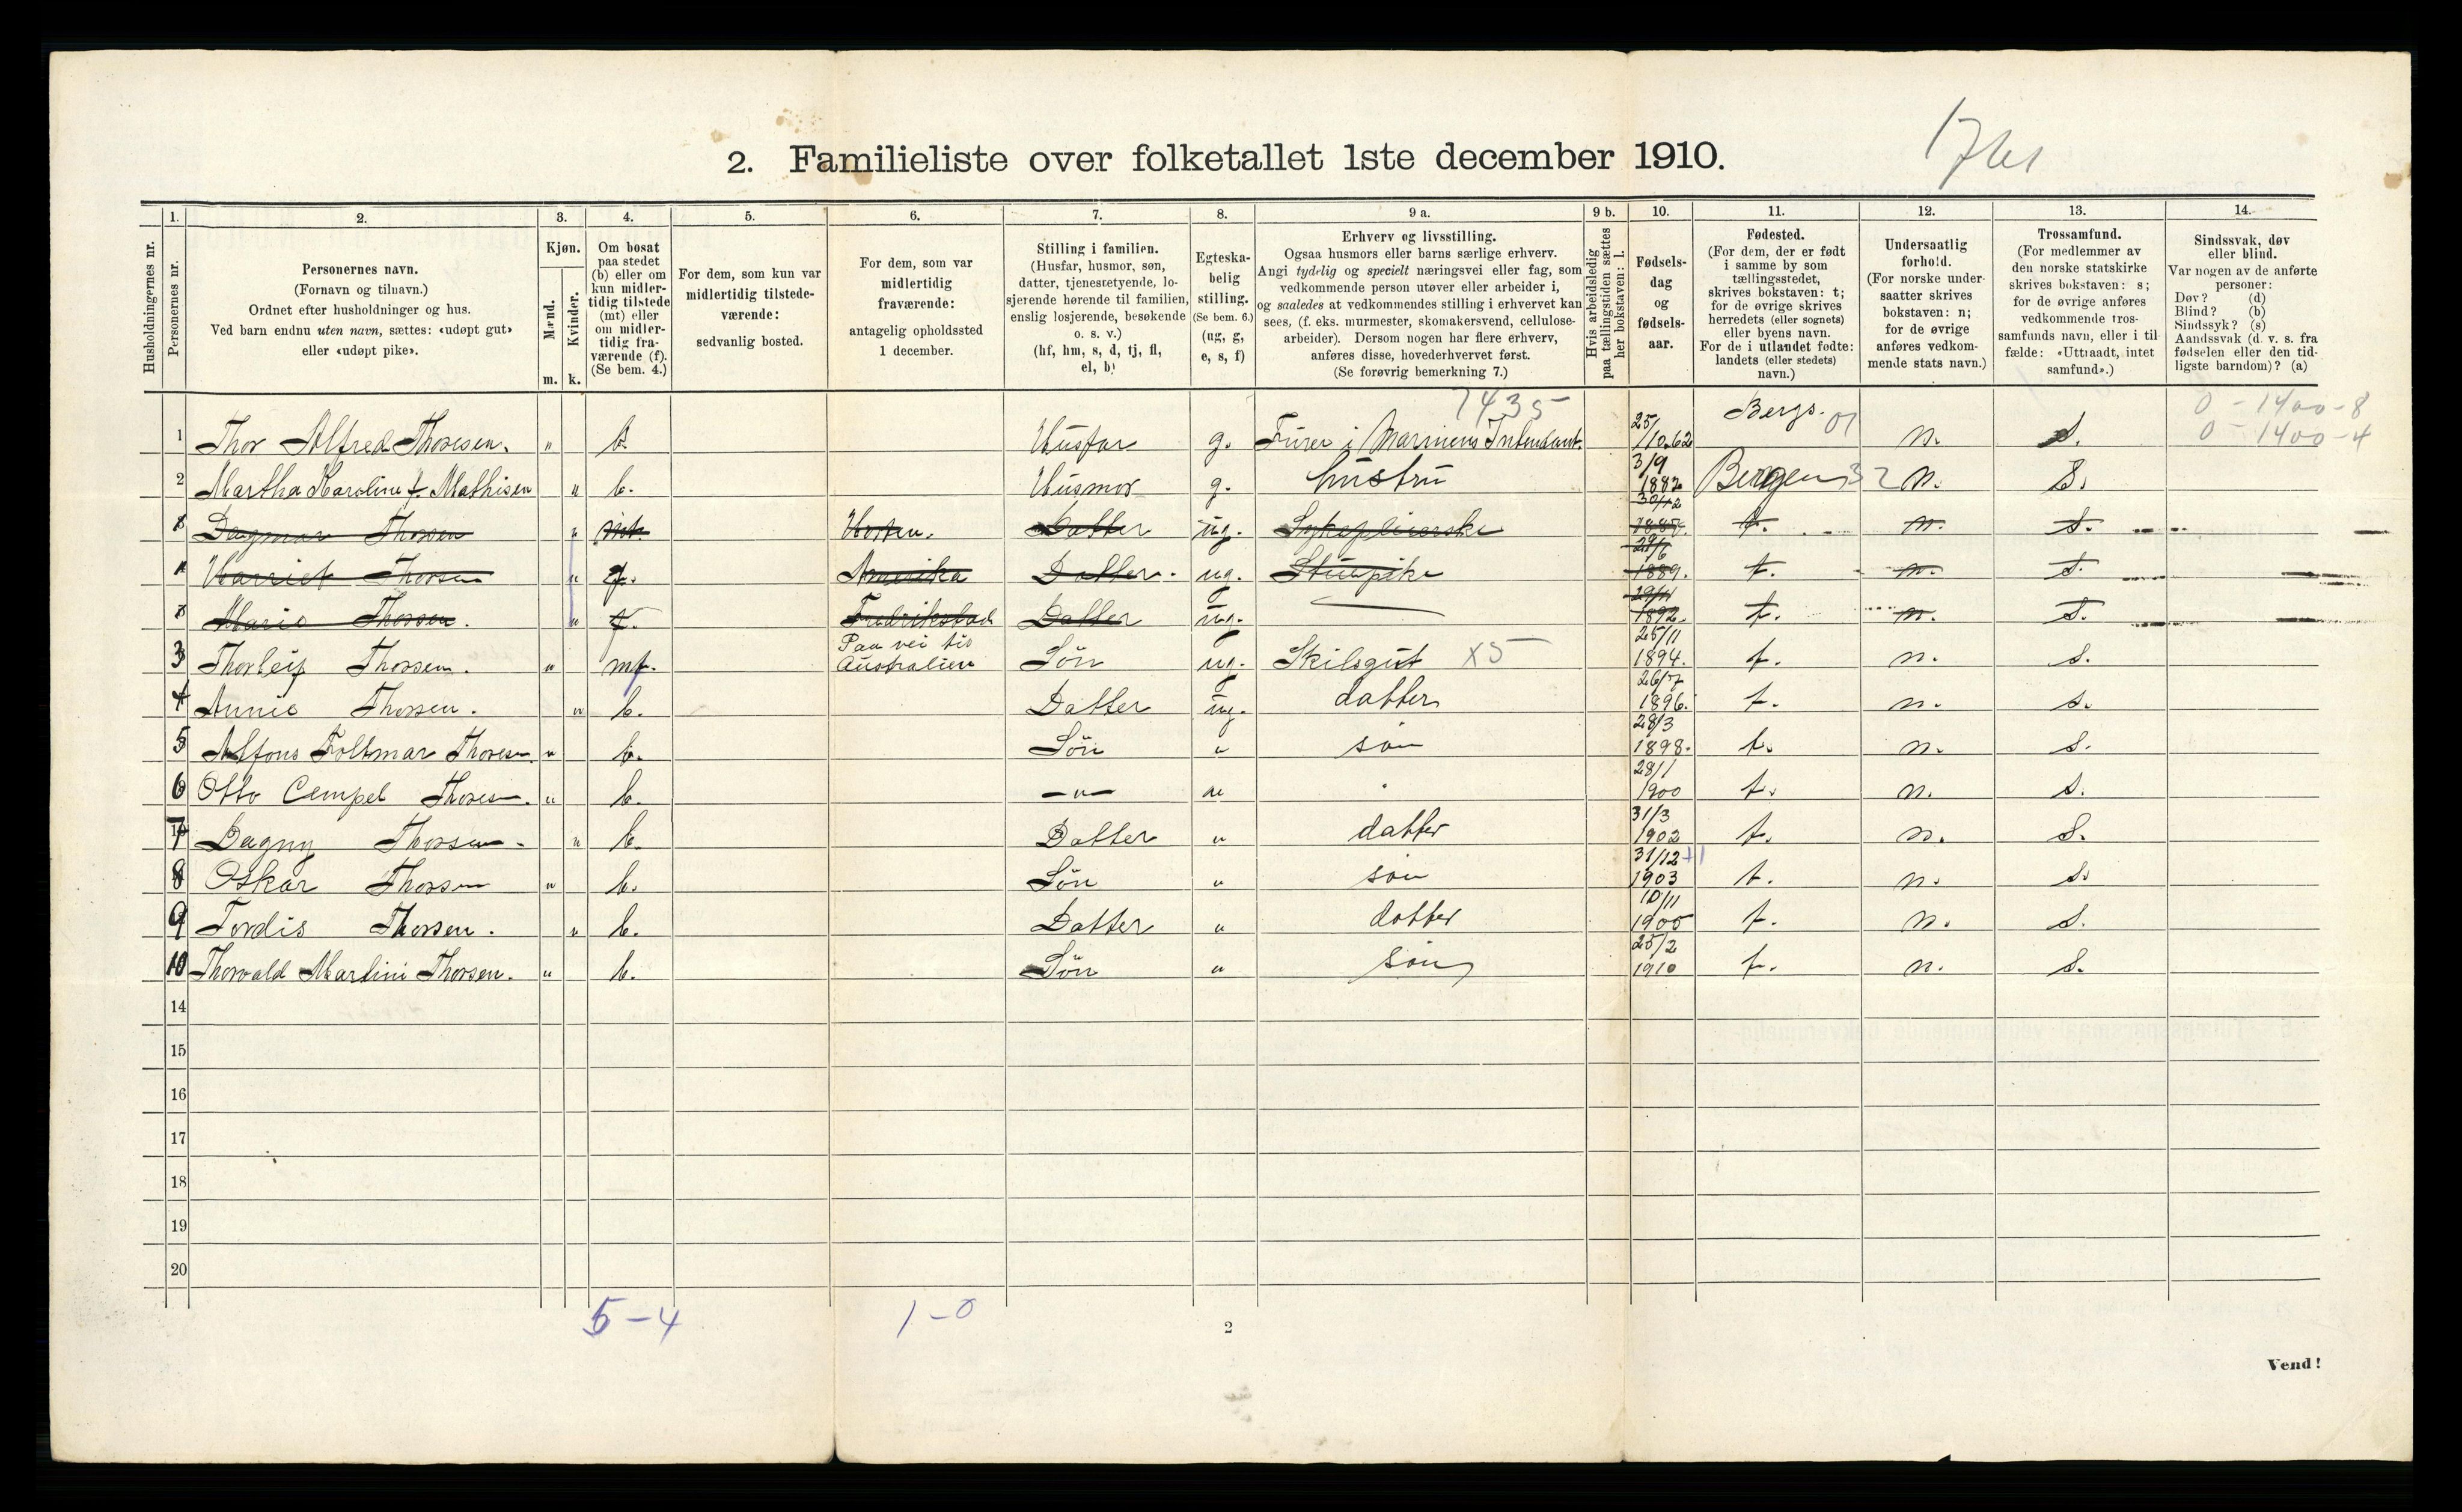 2. Familieliste over folketallet 1ste december 1910.
1. 2. 3. 4. 5. 6. 7. 8. 9 a. 9 b. 10. 11. 12. 13. 14.
Husholdningernes nr.
Personernes nr.
Personernes navn.
(Fornavn og tilnavn.)
Ordnet efter husholdninger og hus.
Ved barn endnu uten navn, sættes: «udøpt gut»
eller «udøpt pike».
Kjøn.
Mænd.
Kvinder.
m. k.
Om bosat
paa stedet
(b) eller om
kun midler-
tidig tilstede
(mt) eller
om midler-
tidig fra-
værende (f).
(Se bem. 4.)
For dem, som kun var
midlertidig tilstede-
værende:
sedvanlig bosted.
For dem, som var
midlertidig
fraværende:
antagelig opholdssted
1 december.
Stilling i familien.
(Husfar, husmor, søn,
datter, tjenestetyende, lo-
sjerende hørende til familien,
enslig losjerende, besøkende
o. s. v.)
(hf, hm, s, d, tj, fl,
el, b)
Egteska-
belig
stilling.
(Se bem. 6.)
(ug, g,
e, s, f)
Erhverv og livsstilling.
Ogsaa husmors eller barns særlige erhverv.
Angi tydelig og specielt næringsvei eller fag, som
vedkommende person utøver eller arbeider i,
og saaledes at vedkommendes stilling i erhvervet kan
sees, (f. eks. murmester, skomakersvend, cellulose-
arbeider). Dersom nogen har flere erhverv,
anføres disse, hovederhvervet først.
(Se forøvrig bemerkning 7.)
Hvis arbeidsledig
paa tællingstiden sættes
her bokstaven: l.
Fødsels-
dag
og
fødsels-
aar.
Fødested.
(For dem, der er født
i samme by som
tællingsstedet,
skrives bokstaven: t;
for de øvrige skrives
herredets (eller sognets)
eller byens navn.
For de i utlandet fødte:
landets (eller stedets)
navn.)
Undersaatlig
forhold.
(For norske under-
saatter skrives
bokstaven: n;
for de øvrige
anføres vedkom-
mende stats navn.)
Trossamfund.
(For medlemmer av
den norske statskirke
skrives bokstaven: s;
for de øvrige anføres
vedkommende tros-
samfunds navn, eller i til-
fælde: «Uttraadt, intet
samfund».)
Sindssvak, døv
eller blind.
Var nogen av de anførte
personer:
Døv? (d)
Blind? (b)
Sindssyk? (s)
Aandssvak (d. v. s. fra
fødselen eller den tid-
ligste barndom)? (a)
7435 0 - 1400 - 8
0 - 1400 - 4
1 Thor Alfred Thoresen. " b. Husfar g. Furer i Marinens Intendant. 25/10.62 Bergs. 01 n. S.
2 Martha Karoline f. Mathisen " b. Husmor g. hustru 3/9 Bergen 32 n. S.
Dagmar Thorsen " mt. Horten. Datter ug. Sykepleierske 30/12 t. n. S.
Harriet Thorsen " f. Amerika Datter. ug. Stuepike 1889. t. n. S.
Marie Thorsen. " f. Fredrikstad Datter ug. 29/11 1892. t. n. S.
3 Thorleif Thorsen. " mf. Paa vei til Australien Sön ug. Skibsgut X5 25/11 1894. t. n. S.
4 Annie Thorsen. " b. Datter ug. datter 26/7 1896. t. n. S.
5 Alfons Foltmar Thoresen. " b. Sön " søn 28/3 1898. t. n. S.
6 Otto Cempel Thoresen. " b. -"- " 28/1 1900 t. n. S.
7 Dagny Thorsen. " b. Datter " datter 31/3 1902 t. n. S.
8 Oskar Thorsen " b. Sön " søn 31/12 +1 1903 t. n. S.
9 Tordis Thorsen. " b. Datter " datter 10/11 1905 t. n. S.
10 Thorvald Martini Thorsen. " b. Sön " søn 25/2 1910 t. n. S.
14
15
16
17
18
19
20
5 - 4 1 - 0
2
Vend!